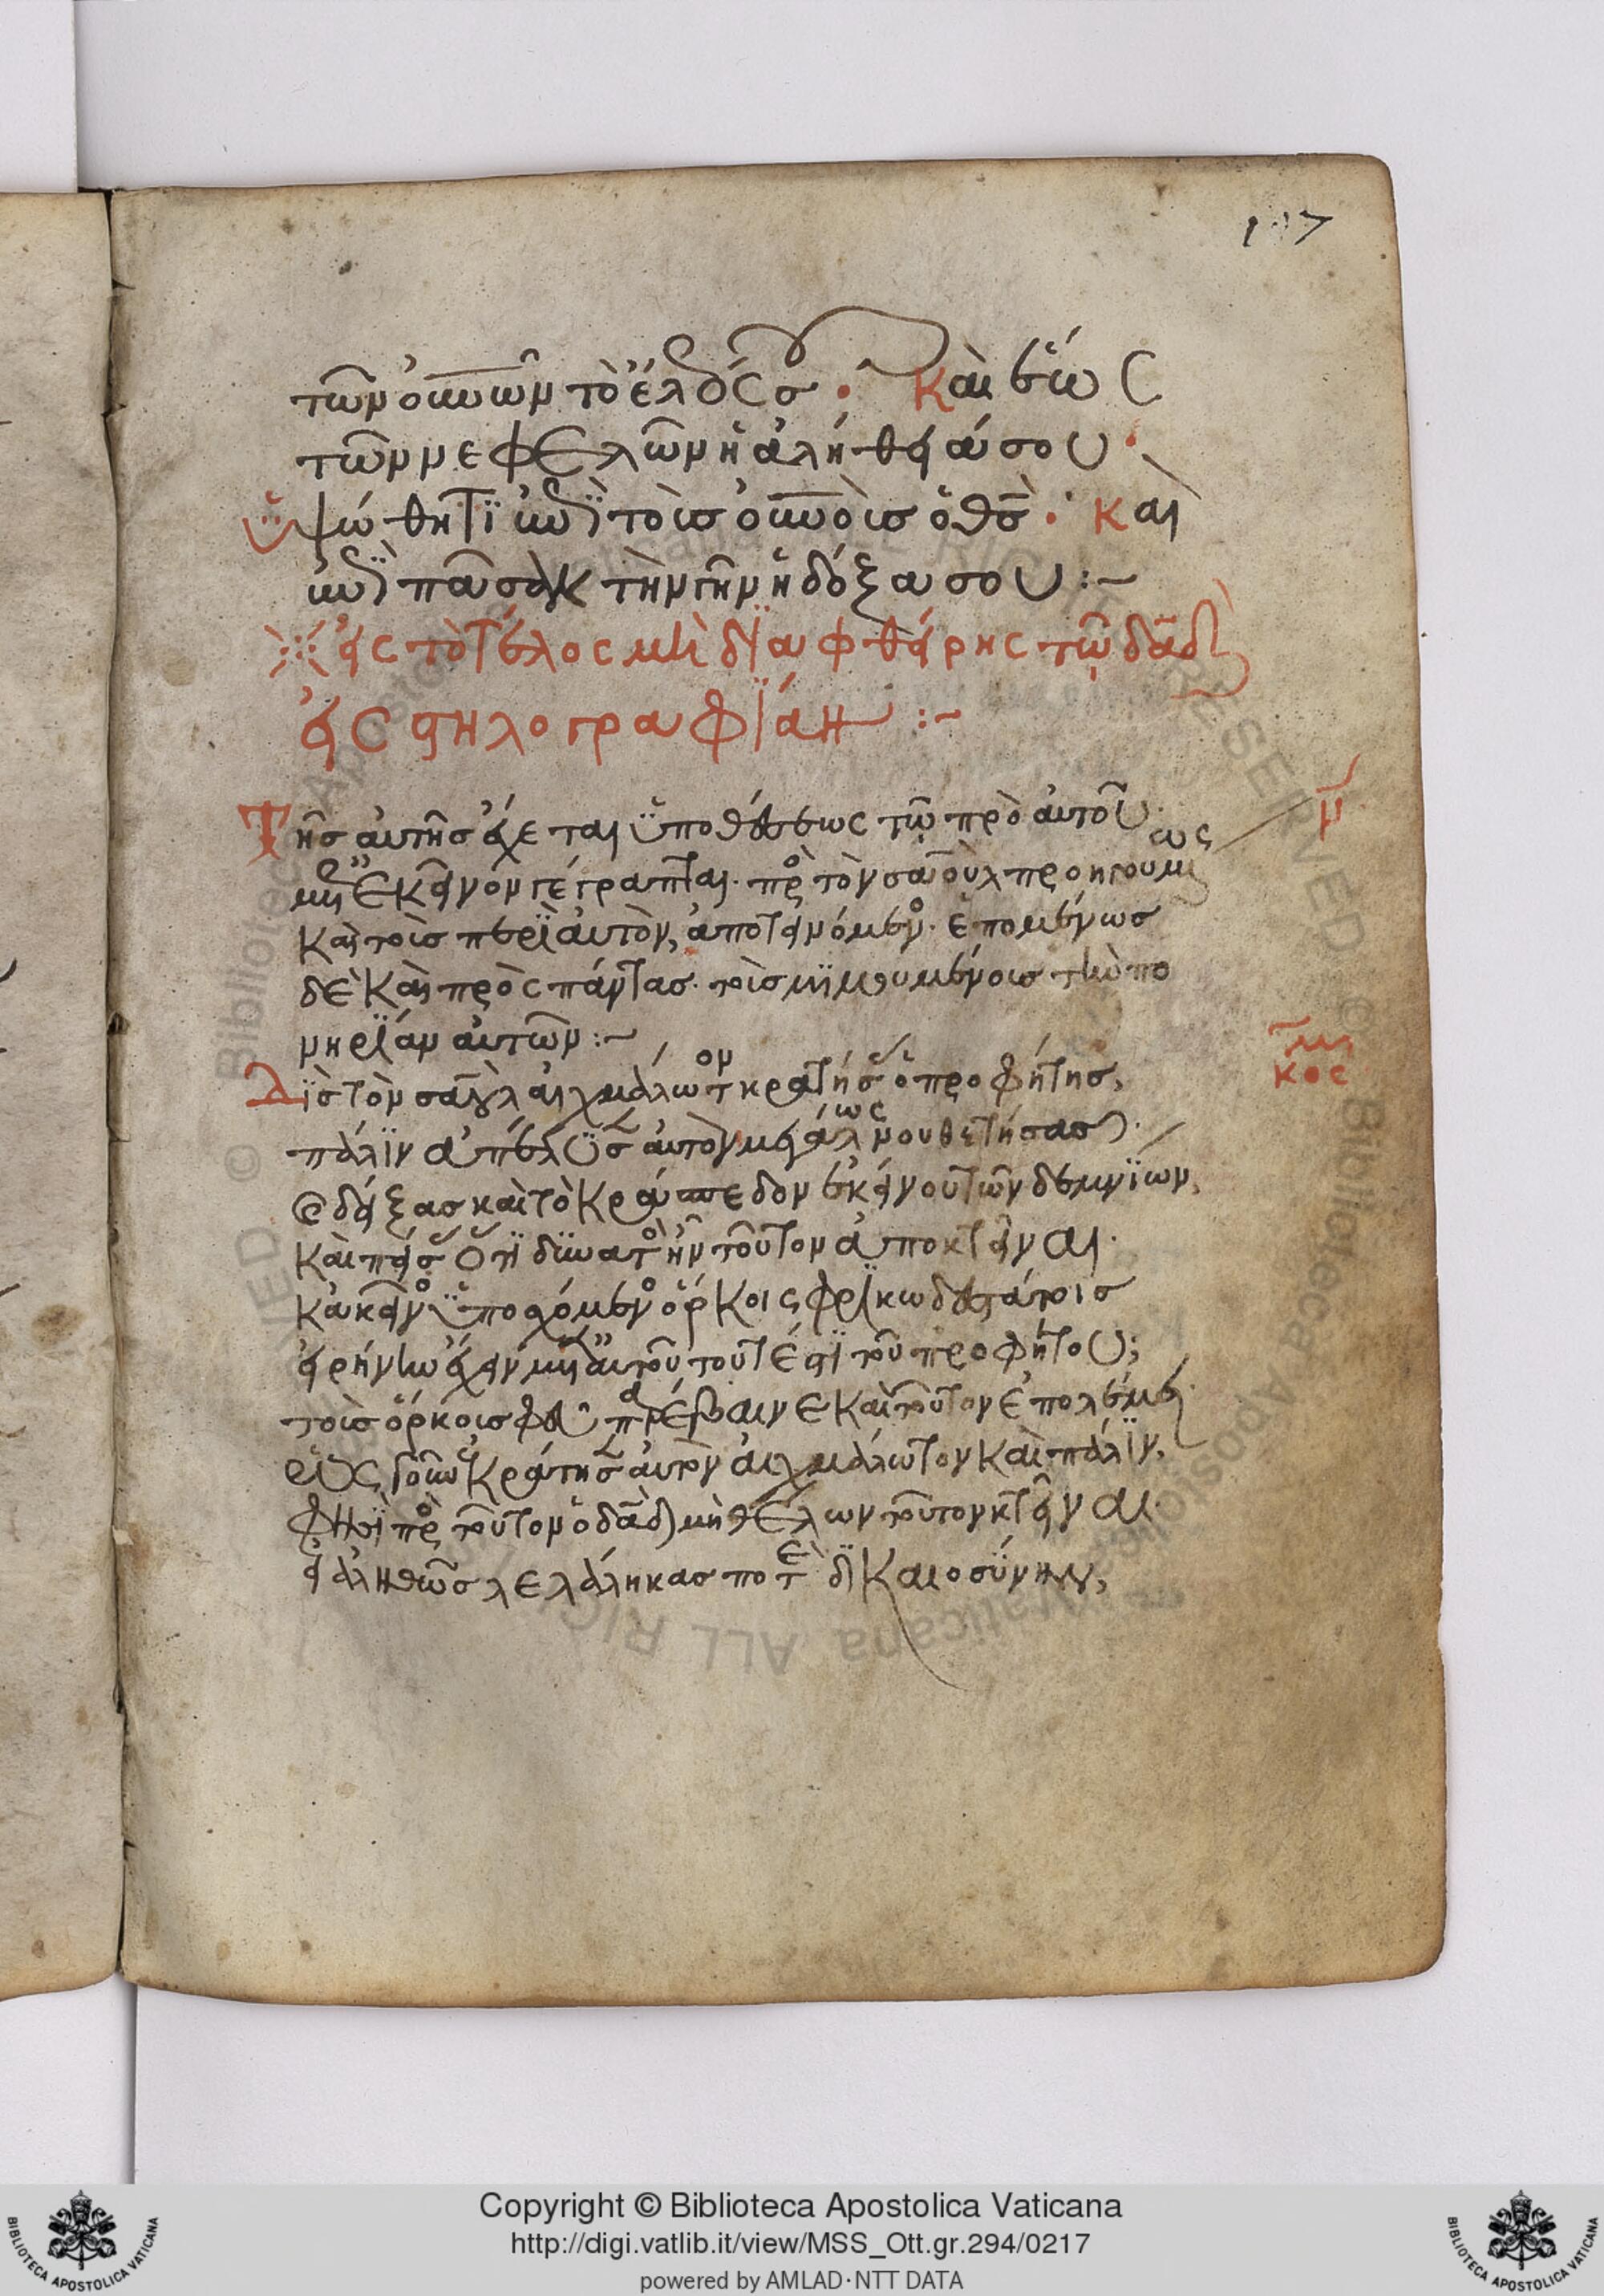 107
τῶν οὐνῶν τὸ ἔλεός σου· Καὶ ἕως
τῶν νεφελῶν ἡ ἀλήθειά σου·
ὑψώθητι ἐπὶ τοὺς οὐνοὺς ὁ θς· Καὶ
ἐπὶ πᾶσαν τὴν γῆν ἡ δόξα σου :~
εἰς τὸ τέλος μὴ διαφθείρης τῷ δαδ
εἰς στηλογραφίαν :~
Τῆς αὐτῆς ἔχεται ὑποθέσεως τῷ πρὸ αὐτοῦ·
μετ' ἐκεῖνον γέγραπται· πρὸς τὸν σαοὺλ προηγουμένως
καὶ τοῖς περὶ αὐτὸν, ἀποτεινόμενος· ἑπομένως
δὲ καὶ πρὸς πάντας· τοὺς μιμουμένους τὴν πο
νηρίαν αὐτῶν :~
Δὶς τὸν σαοὺλ αἰχμάλωτον κρατήσας ὁ προφήτης,
πάλιν ἀπέλυσεν αὐτὸν μεγάλως νουθετήσας·
δείξας καὶ τὸ κράσπεδον ἐκ τῶν
καὶ πείσας ὅτι δυνατὸς ἦν τοῦτον ἀποκτεῖναι·
κἀκεῖνος ὑποσχόμενος ὅρκοις φρικωδεστάτοις
εἰρήνην ἔχειν μετ' αὐτοῦ τουτέστι τοῦ προφήτου;
τοὺς ὅρκους παρέβαινε καὶ τοῦτον ἐπολέμει·
κράτησεν αὐτὸν αἰχμάλωτον καὶ πάλιν,
φησὶ πρὸς τοῦτον ὁ δαδ μὴ θέλων τοῦτον κτεῖναι·
εἰ ἀληθῶς λελάληκας ποτὲ δικαιοσύνην,
κος
Copyright © Biblioteca Apostolica Vaticana
http://digi.vatlib.it/view/MSS_Ott.gr.294/0217
powered by AMLAD·NTT DATA
BIBLIOTECA APOSTOLICA VATICANA
BIBLIOTECA APOSTOLICA VATICANA